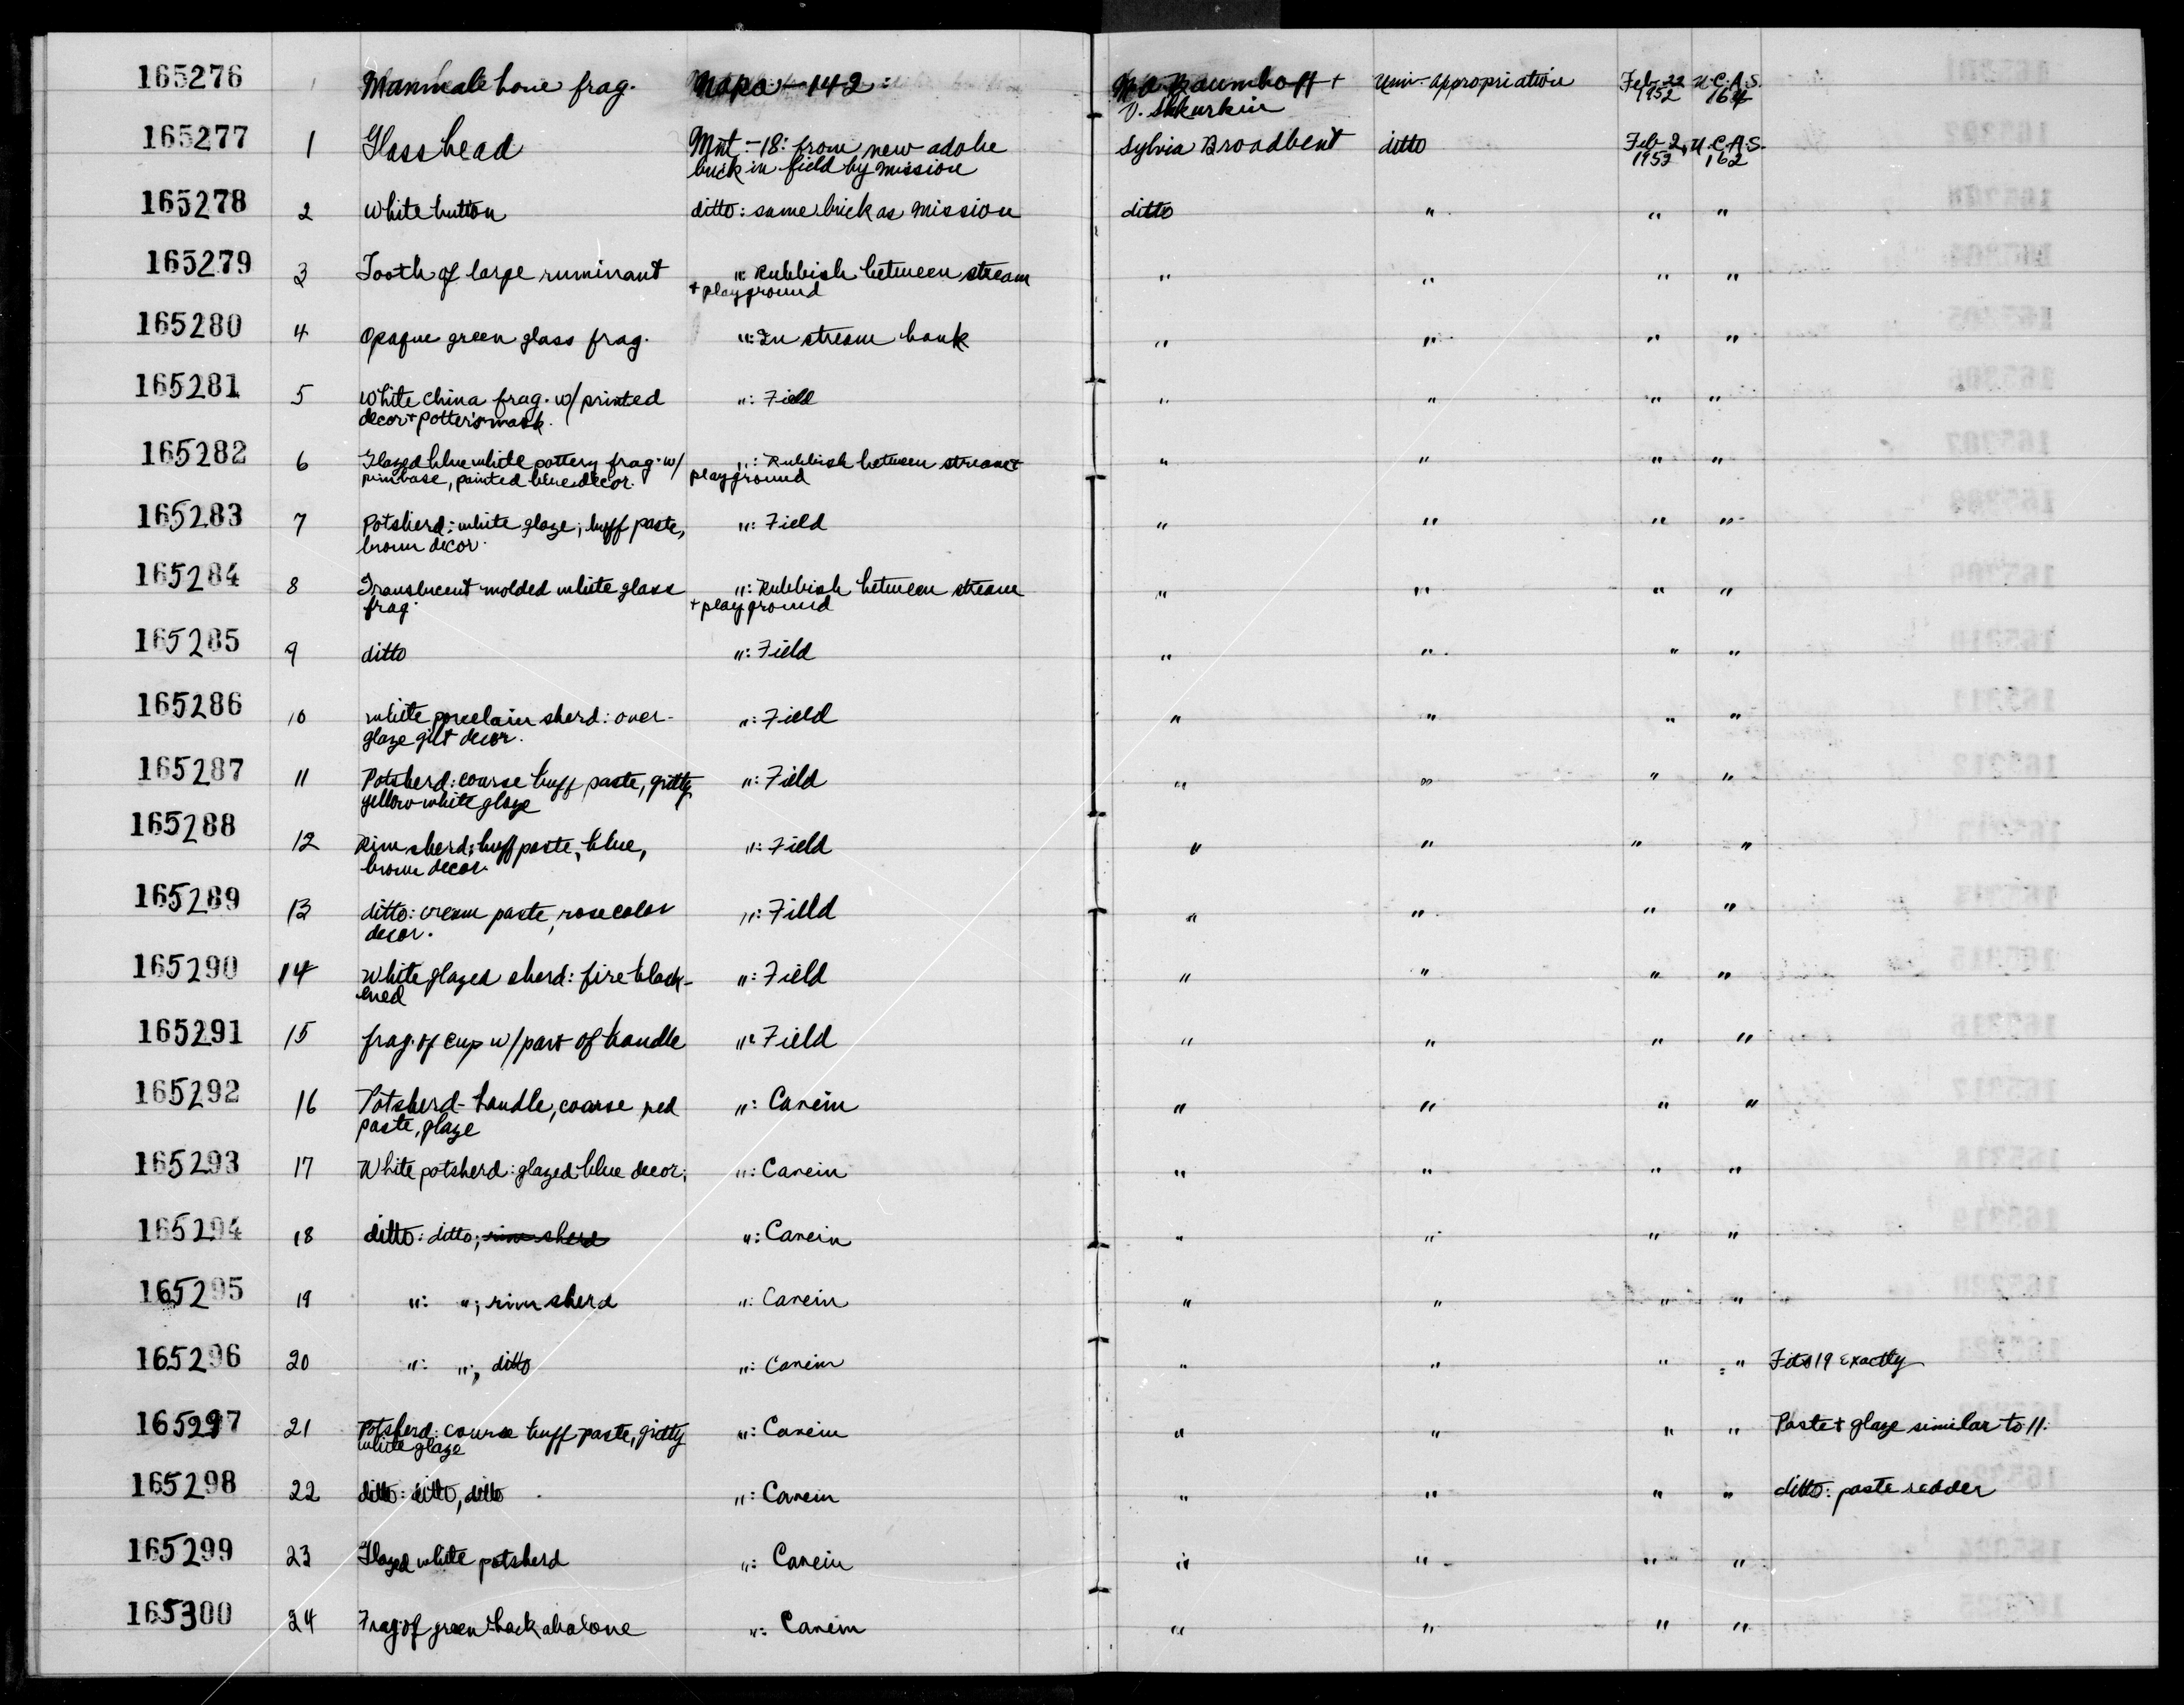 165276 Mammal bone frag. Napa-142: M A Baumhoff + Univ. Appropriation Feb. 22 U.C.A.S.
V. Shkurkin 1952 164
165277 1 Glass bead Mnt-18: from new adobe Sylvia Broadbent ditto Feb 2, U.C.A.S.
brick in field by mission 1952 162
165278 2 White button ditto: same brick as mission ditto " " "
165279 3 Tooth of large ruminant ": Rubbish between stream " " " "
+ playground
165280 4 Opaque green glass frag. ": In stream bank " " " "
165281 5 White china frag. w/ printed ": Field " " " "
decor + potter's mark.
165282 6 Glazed blue white pottery frag. w/ ": Rubbish between stream + " " " "
rim base, painted blue decor. playground
165283 7 Potsherd: white glaze; buff paste, ": Field " " " "
brown decor.
165284 8 Translucent molded white glass ": Rubbish between stream " " " "
frag. + playground
165285 9 ditto ": Field " " " "
165286 10 White porcelain sherd: over- ": Field " " " "
glaze gilt decor.
165287 11 Potsherd: coarse buff paste, gritty ": Field " " " "
yellow-white glaze
165288 12 Rim sherd: buff paste, blue, ": Field " " " "
brown decor.
165289 13 ditto: cream paste, rose color ": Field " " " "
decor.
165290 14 White glazed sherd: fire black- ": Field " " " "
ened
165291 15 frag. of cup w/ part of handle ": Field " " " "
165292 16 Potsherd-handle, coarse red ": Carein " " " "
paste, glaze
165293 17 White potsherd: glazed blue decor: ": Carein " " " "
165294 18 ditto: ditto; rim sherd ": Carein " " " "
165295 19 ": "; rim sherd ": Carein " " " "
165296 20 ": "; ditto ": Carein " " " " Fits 19 exactly
165297 21 Potsherd: coarse buff paste, gritty ": Carein " " " " Paste + glaze similar to 11.
white glaze
165298 22 ditto: ditto, ditto ": Carein " " " " ditto: paste redder
165299 23 Glazed white potsherd ": Carein " " " "
165300 24 Frag. of green back abalone ": Carein " " " "